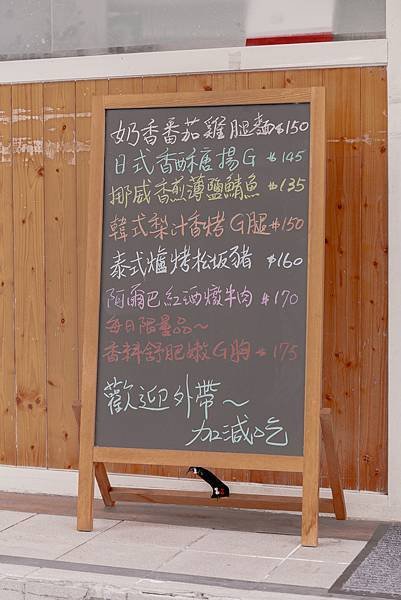 奶香番茄雞腿麵$150
日式香酥唐揚G $145
挪威香煎薄鹽鯖魚 $135
韓式梨汁香烤G腿$150
泰式爐烤松坂豬 $160
阿爾巴紅酒燉牛肉 $170
每日限量品～
香料舒肥嫩G胸 $175
歡迎外帶～
加減吃